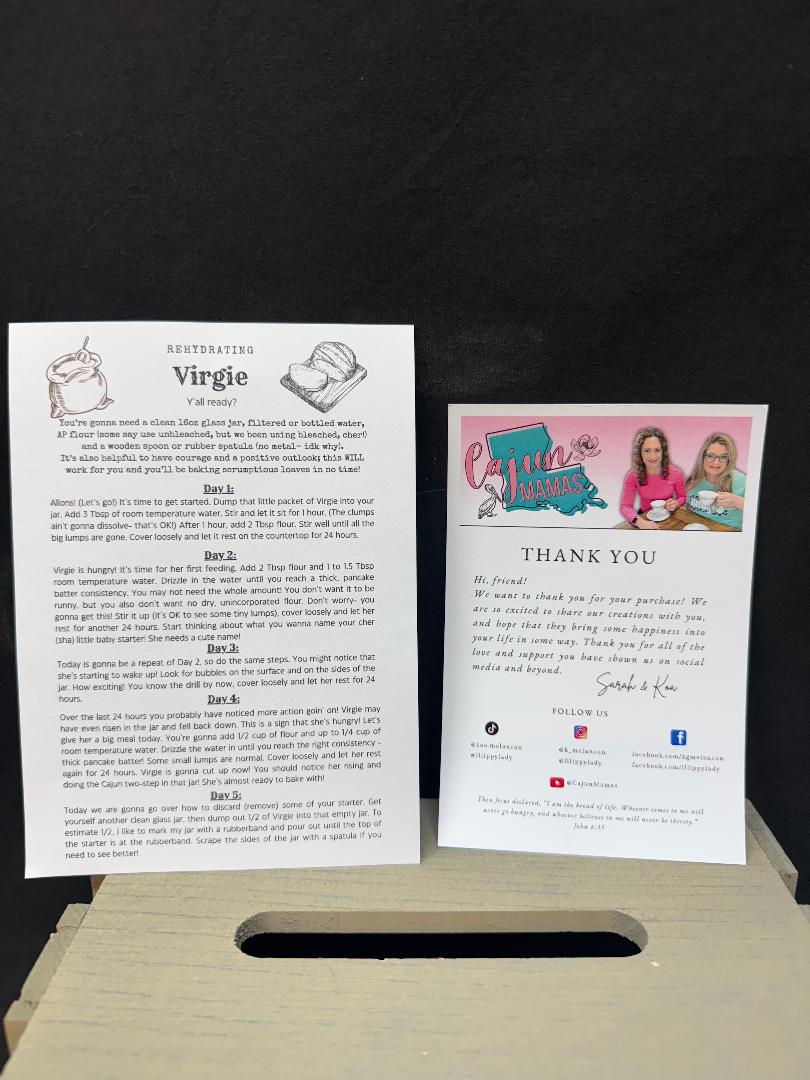 REHYDRATING
Virgie
Y'all ready?
You're gonna need a clean 16oz glass jar, filtered or bottled water,
AP flour (some say use unbleached, but we been using bleached, cher!)
and a wooden spoon or rubber spatula (no metal- idk why).
It's also helpful to have courage and a positive outlook; this WILL
work for you and you'll be baking scrumptious loaves in no time!
Day 1:
Allons! (Let's go!) It's time to get started. Dump that little packet of Virgie into your
jar. Add 3 Tbsp of room temperature water. Stir and let it sit for 1 hour. (The clumps
ain't gonna dissolve- that's OK!) After 1 hour, add 2 Tbsp flour. Stir well until all the
big lumps are gone. Cover loosely and let it rest on the countertop for 24 hours.
Day 2:
Virgie is hungry! It's time for her first feeding. Add 2 Tbsp flour and 1 to 1.5 Tbsp
room temperature water. Drizzle in the water until you reach a thick, pancake
batter consistency. You may not need the whole amount! You don't want it to be
runny, but you also don't want no dry, unincorporated flour. Don't worry- you
gonna get this! Stir it up (it's OK to see some tiny lumps), cover loosely and let her
rest for another 24 hours. Start thinking about what you wanna name your cher
(sha) little baby starter! She needs a cute name!
Day 3:
Today is gonna be a repeat of Day 2, so do the same steps. You might notice that
she's starting to wake up! Look for bubbles on the surface and on the sides of the
jar. How exciting! You know the drill by now, cover loosely and let her rest for 24
hours.
Day 4:
Over the last 24 hours you probably have noticed more action goin' on! Virgie may
have even risen in the jar and fell back down. This is a sign that she's hungry! Let's
give her a big meal today. You're gonna add 1/2 cup of flour and up to 1/4 cup of
room temperature water. Drizzle the water in until you reach the right consistency -
thick pancake batter! Some small lumps are normal. Cover loosely and let her rest
again for 24 hours. Virgie is gonna cut up now! You should notice her rising and
doing the Cajun two-step in that jar! She's almost ready to bake with!
Day 5:
Today we are gonna go over how to discard (remove) some of your starter. Get
yourself another clean glass jar, then dump out 1/2 of Virgie into that empty jar. To
estimate 1/2, I like to mark my jar with a rubberband and pour out until the top of
the starter is at the rubberband. Scrape the sides of the jar with a spatula if you
need to see better!
Cajun
MAMAS
THANK YOU
Hi, friend!
We want to thank you for your purchase! We
are so excited to share our creations with you,
and hope that they bring some happiness into
your life in some way. Thank you for all of the
love and support you have shown us on social
media and beyond.
Sarah & Koa
FOLLOW US
@koa.melancon
@lilippylady
@k_melancon
@lilippylady
facebook.com/kgmelancon
facebook.com/lilippylady
@CajunMamas
Then Jesus declared, "I am the bread of life. Whoever comes to me will
never go hungry, and whoever believes in me will never be thirsty."
John 6:35